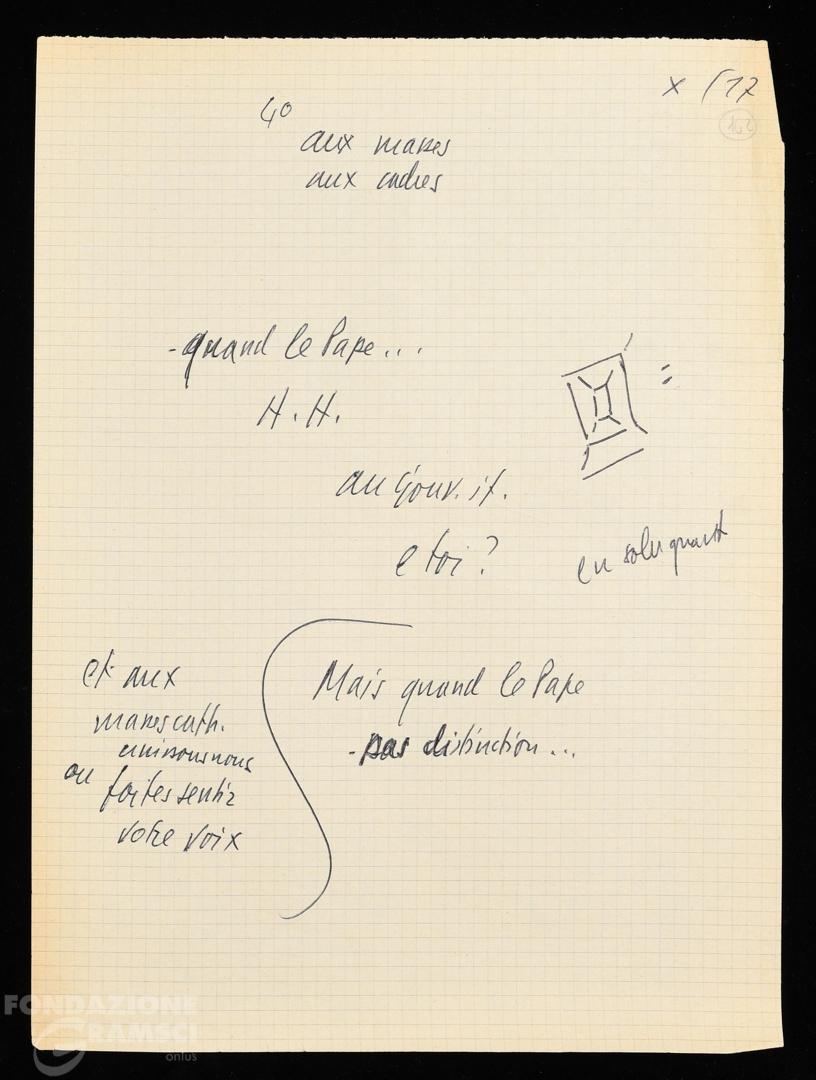 x / 17
142
4°
aux masses
aux cadres
- quand le Pape...
H. H.
au Gouv. it.
e toi?
en soliquant
Mais quand le Pape
- pas distinction...
et aux
masses cath.
unissons nous
ou faites sentir
votre voix
FONDAZIONE
GRAMSCI
onlus